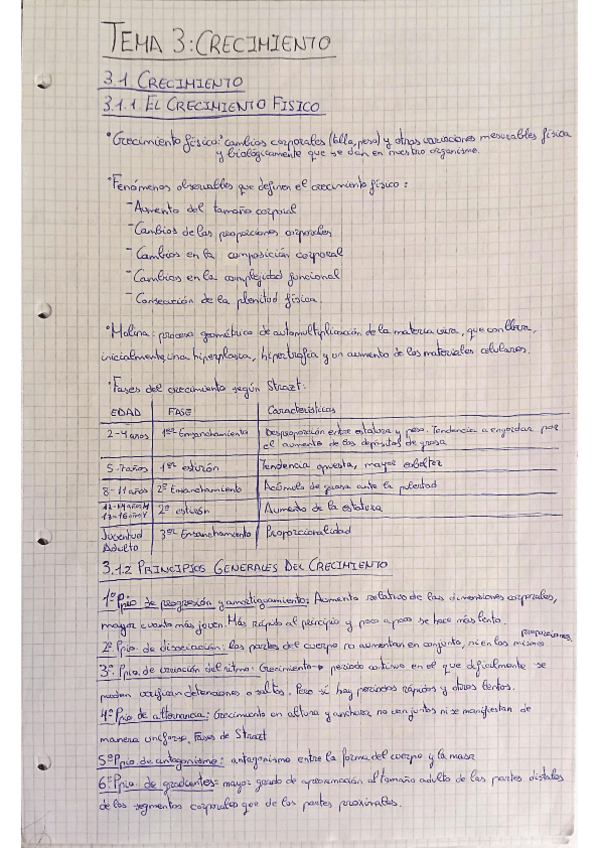 TEMA 3: CRECIMIENTO
3.1 CRECIMIENTO
3.1.1 EL CRECIMIENTO FISICO
*Crecimiento físico: cambios corporales (talla, peso) y otras variaciones mesurables física
y biológicamente que se dan en nuestro organismo.
*Fenómenos observables que definen el crecimiento físico:
- Aumento del tamaño corporal
- Cambios de las proporciones corporales
- Cambios en la composición corporal
- Cambios en la complejidad funcional
- Consecución de la plenitud física.
*Malina: proceso geométrico de automultiplicación de la materia viva, que conlleva,
inicialmente, una hiperplasia, hipertrofia y un aumento de los materiales celulares.
*Fases del crecimiento según Stratz:
EDAD FASE Características
2-4 años 1er Ensanchamiento Desproporción entre estatura y peso. Tendencia a engordar por
el aumento de los depósitos de grasa
5-7 años 1er estirón Tendencia opuesta, mayor esbeltez
8-11 años 2º Ensanchamiento Acúmulo de grasa ante la
2º estirón Aumento de la estatura
Juventud
Adulto 3er Ensanchamiento Proporcionalidad
3.1.2 PRINCIPIOS GENERALES DEL CRECIMIENTO
1º Ppio de progresión y amortiguamiento: Aumento relativo de las dimensiones corporales,
mayor cuanto más joven. Más rápido al principio y poco a poco se hace más lento.
2º Ppio. de disociación: las partes del cuerpo no aumentan en conjunto, ni en las mismas
proporciones.
3º Ppio. de variación del ritmo: Crecimiento → periodo continuo en el que difícilmente se
puedan verificar detenciones o saltos. Pero sí hay periodos rápidos y otros lentos.
4º Ppio de alternancia: Crecimiento en altura y anchura no conjuntos ni se manifiestan de
manera uniforme. Fases de Stratz
5º Ppio. de antagonismo: antagonismo entre la forma del cuerpo y la masa
6º Ppio. de gradientes: mayor grado de aproximación al tamaño adulto de las partes distales
de los segmentos corporales que de las partes proximales.